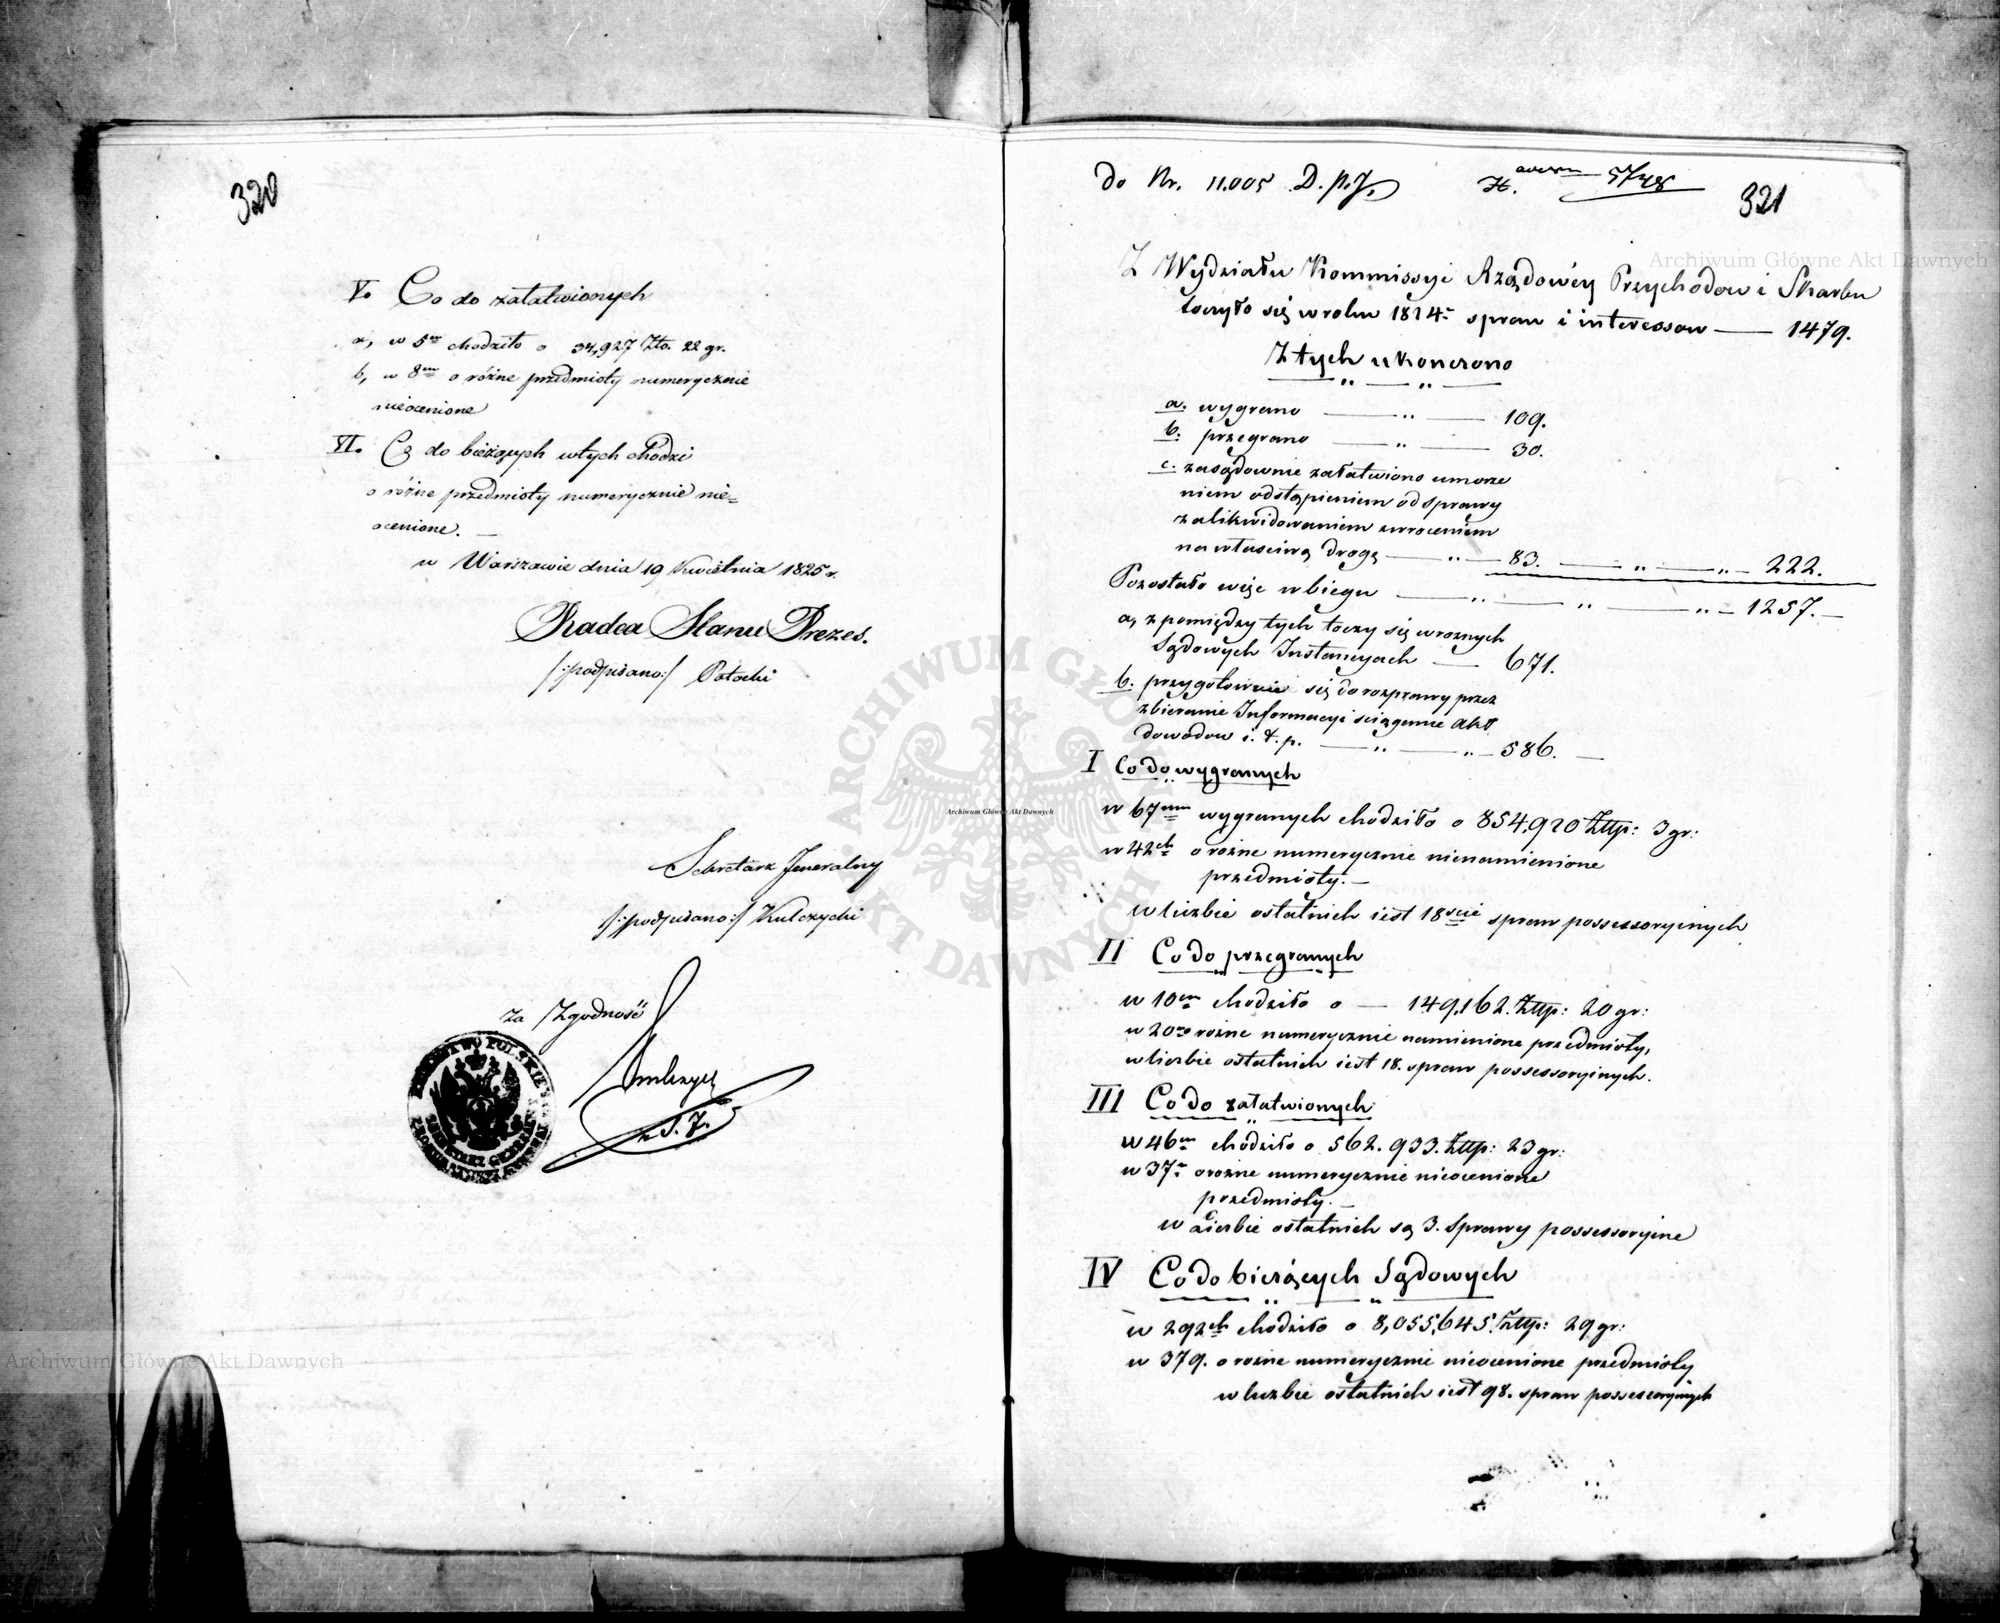 320
V. Co do załatwionych
a, w 5ciu chodziło o 34,927 Złto. 22 gr.
b, w 8miu o różne przedmioty numerycznie
nieocenione
VI. Co do bieżących w tych chodzi
o różne przedmioty numerycznie nie=
ocenione. —
w Warszawie dnia 19 Kwietnia 1825 r.
Radca Stanu Prezes.
/:podpisano:/ Potocki
Sekretarz Jeneralny
/:podpisano:/ Kulczycki
Za Zgodność
z S. J.
do Nr. 11.005 D. p. J. 5748
321
Z Wydziału Kommissyi Rządowéy Przychodow i Skarbu
toczyło się w roku 1824. spraw i interessow — 1479.
Z tych ukonczono
a. wygrano — „ — 109.
b. przegrano — „ — 30.
c. zasądownie załatwiono umorze
niem odstąpieniem od sprawy
zalikwidowaniem zwroceniem
na właściwą drogę — „ — 83. — „ — „ — 222.
Pozostało więc w biegu — „ — „ — „ — 1257. —
a, z pomiędzy tych toczy się w roznych
Sądowych Instancyach — 671.
b. przygotowuie się do rozprawy przez
zbieranie Informacyi sciągnie akt
dowodow i. t. p. — „ — „ — 586. —
I Co do wygranych
w 67miu wygranych chodziło o 854,920 Złtp: 3 gr:
w 42ch o rożne numerycznie nienamienione
przedmioty. —
w liczbie ostatnich iest 18scie spraw possessoryinych
II Co do przegranych
w 10ciu chodziło o — 149,162. Złtp: 20 gr:
w 20 o rożne numerycznie namienione przedmioty,
w liczbie ostatnich iest 18. spraw possessoryinych.
III Co do załatwionych
w 46ciu chodziło o 562.933. Złtp: 23 gr:
w 37u o rożne numerycznie nieocenione
przedmioty. —
w Liczbie ostatnich są 3. Sprawy possessoryine
IV Co do bieżących Sądowych
w 292ch chodziło o 8,055,645. Złtp: 29 gr:
w 379. o rożne numerycznie nieocenione przedmioty
w liczbie ostatnich iest 98. spraw possessoryinych
Archiwum Główne Akt Dawnych
Archiwum Główne Akt Dawnych
Archiwum Główne Akt Dawnych
ARCHIWUM GŁÓWNE AKT DAWNYCH